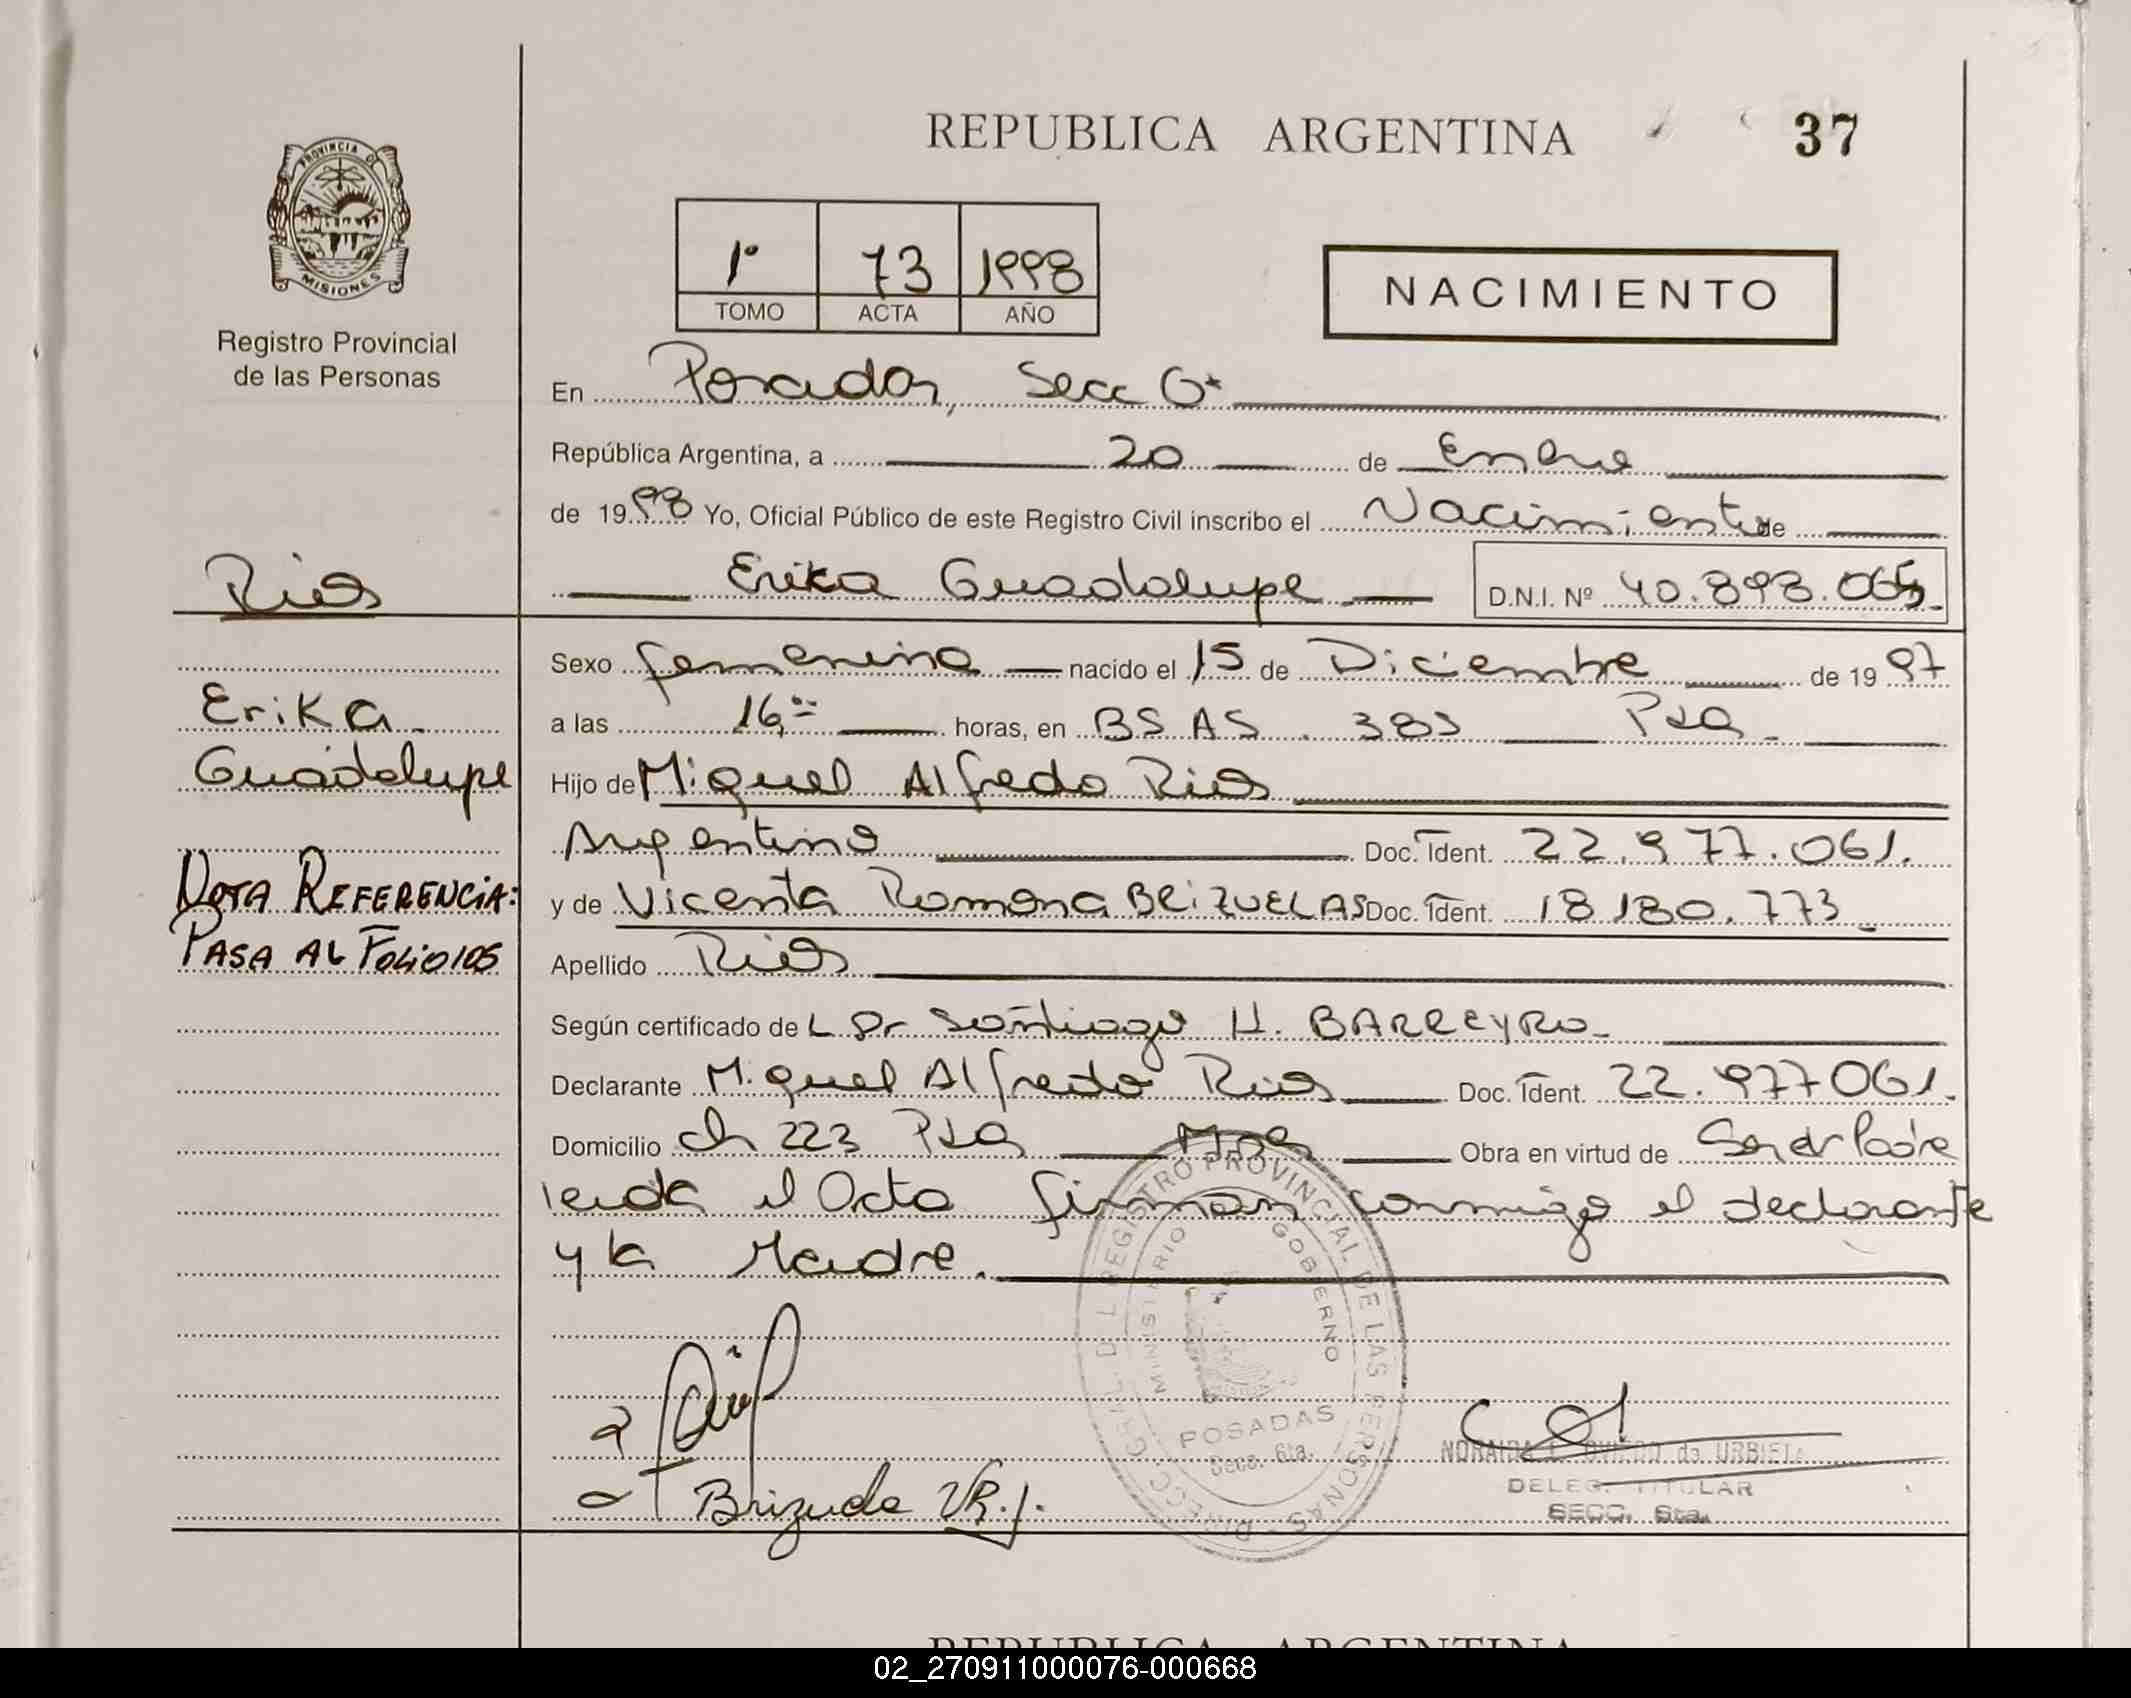 REPUBLICA ARGENTINA
37
PROVINCIA DE
MISIONES
Registro Provincial
de las Personas
1º 73 1998
TOMO ACTA AÑO
NACIMIENTO
En Posadas, Secc 6ª
República Argentina, a 20 de Enero
de 1998 Yo, Oficial Público de este Registro Civil inscribo el Nacimiento de
Rios
Erika Guadalupe
D.N.I. Nº 40.898.065
Sexo femenino nacido el 15 de Diciembre de 1997
Erika
a las 16,00 horas, en BS AS. 383 Pdas
Guadalupe
Hijo de Miguel Alfredo Rios
Argentino Doc. Ident. 22.977.061.
NOTA REFERENCIA:
y de Vicenta Romona BRIZUELAS Doc. Ident. 18.180.773
PASA AL FOLIO 105
Apellido Rios
Según certificado de L Dr Santiago H. BARREYRO
Declarante Miguel Alfredo Rios Doc. Ident. 22.977061.
Domicilio ch 223 Pdas Mnes Obra en virtud de Ser el Padre
leida el Acta firman conmigo el declarante
y la Madre.
DIRECC. GRAL. DEL REGISTRO PROVINCIAL DE LAS PERSONAS
MINISTERIO GOBIERNO
POSADAS
Secc. 6ta.
Brizuela VR.
NORAIDA OVIEDO de URBIETA
DELEG. TITULAR
SECC. 6ta.
REPUBLICA ARGENTINA
02_270911000076-000668